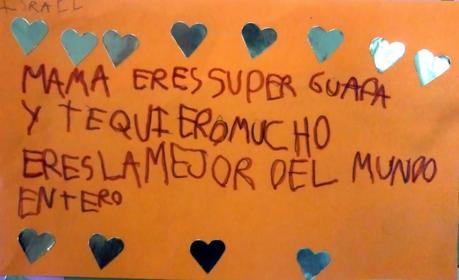 ISRAEL
MAMA ERES SUPER GUAPA
Y TE QUIERO MUCHO
ERES LA MEJOR DEL MUNDO
ENTERO